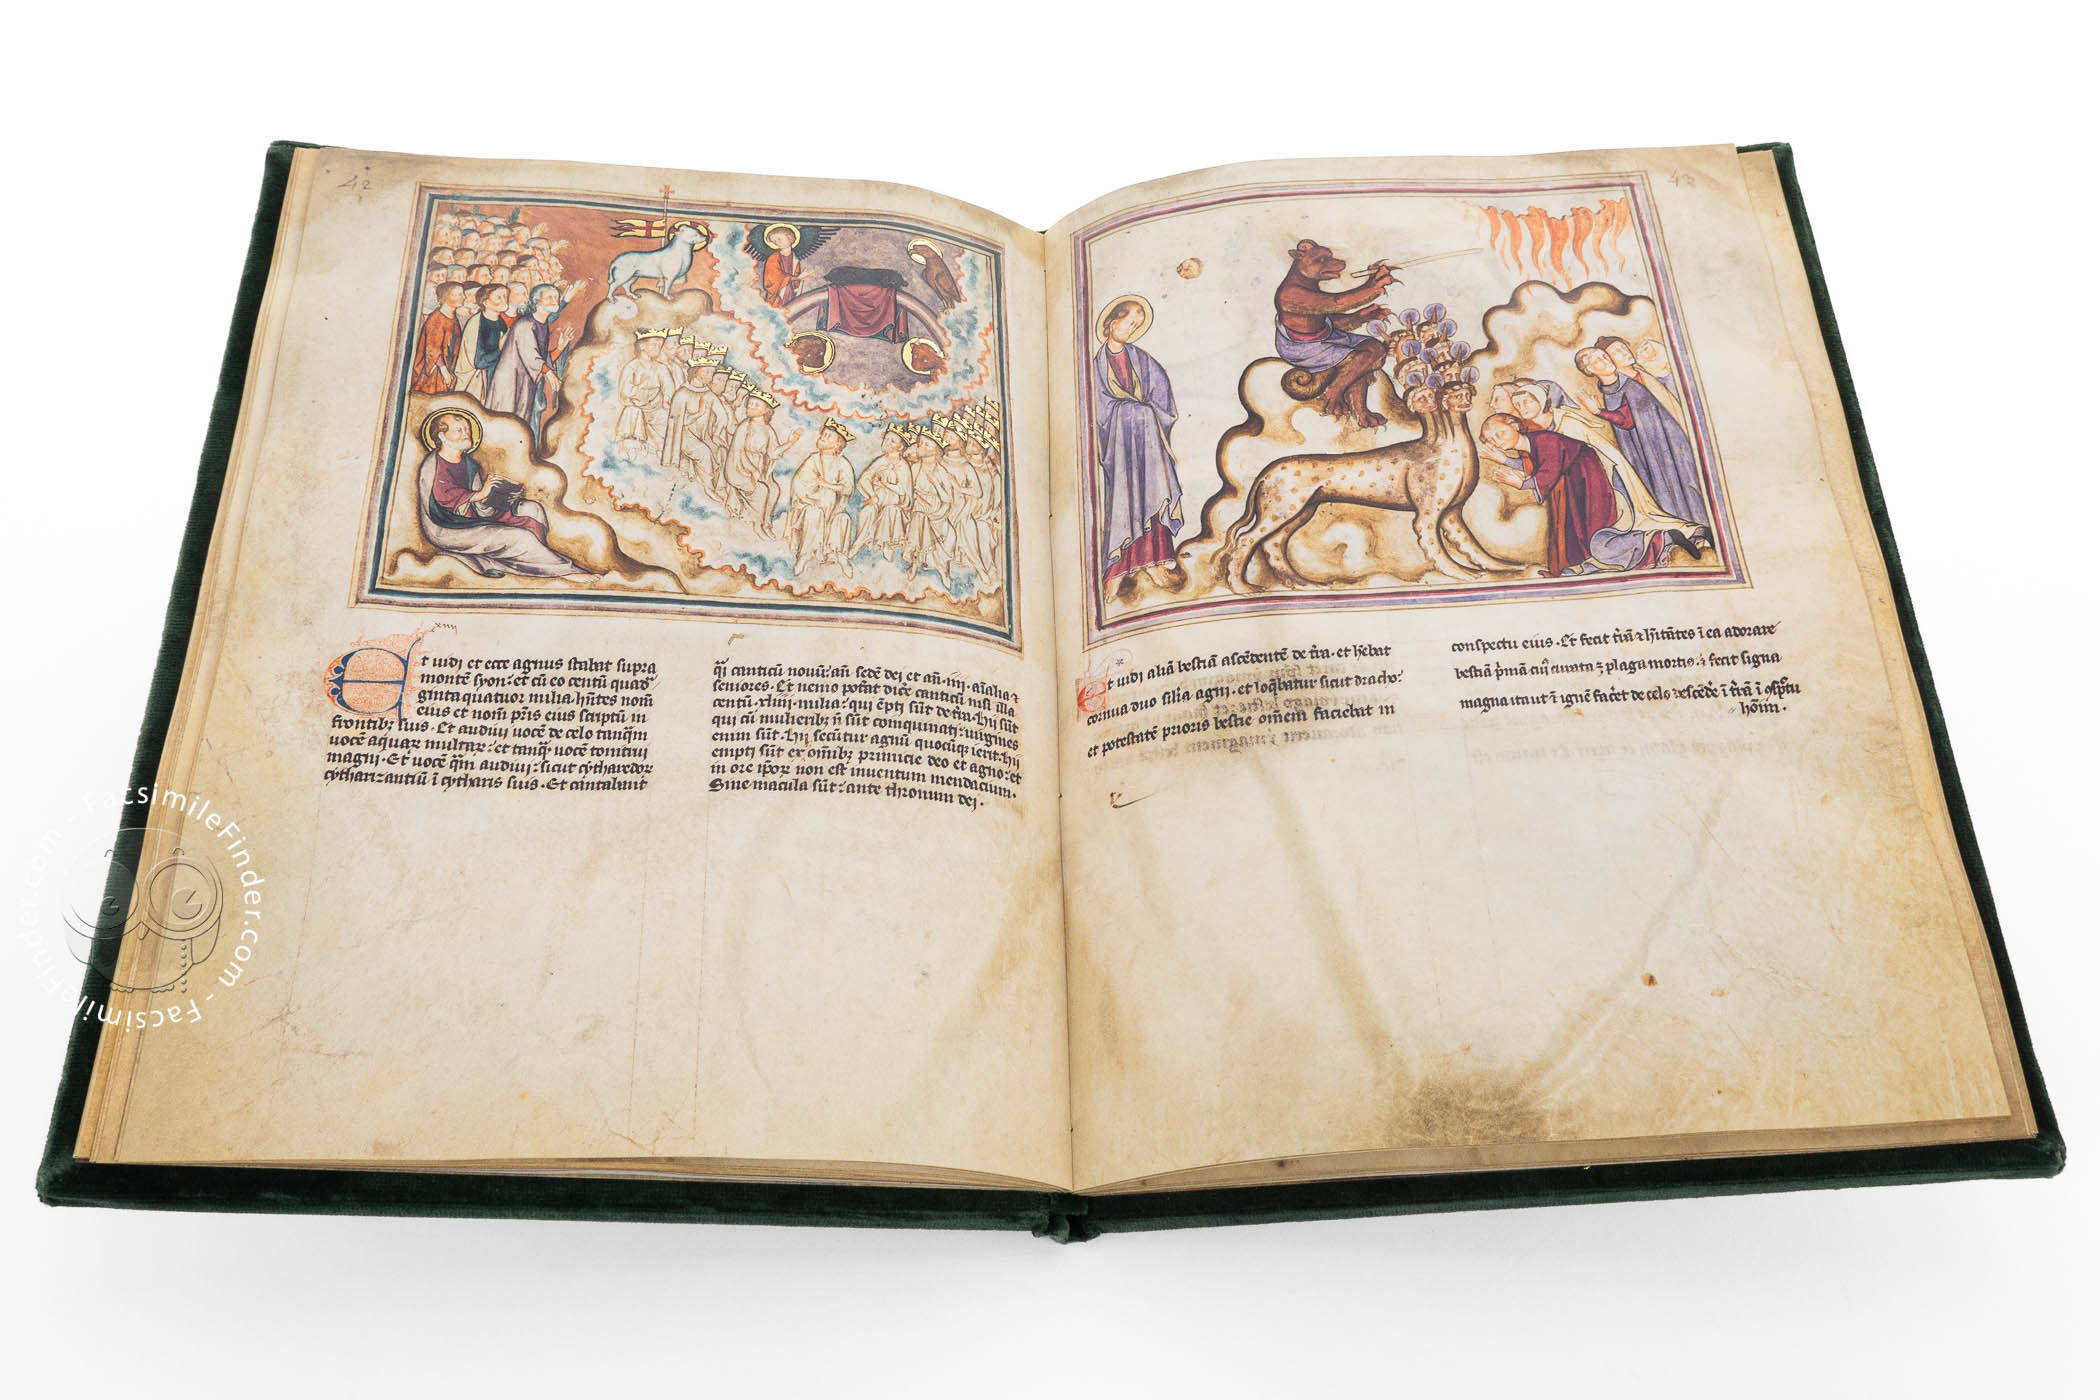 42
xiiii
Et uidi et ecce agnus stabat supra
montē syon: et cū eo centū quad᷑
ginta quatuor milia. hn̄tes nom̄
eius et nom̄ pr̄is eius scriptū in
frontibꝫ suis. Et audiui uocē de celo tanqͣm
uocē aquaꝝ multaꝝ: et tanqͣ uocē tonitrui
magni. Et uocē qͣm audiui: sicut cytharedoꝝ
cythariꝫantiū ī cytharis suis. Et cantabant
qͣi canticū nouū: an̄ sedē dei et an̄. iiii. aīalia ⁊
seniores. Et nemo potat dic̄e canticū nisi illa
centū. xliiii. milia: qui ēpti sūt de t̄ra. Hii sūt
qui cū mulieribꝫ n̄ sūt coinquinati: uirgines
enim sūt. Hii secūtur agnū quocūqꝫ ierit. Hii
empti sūt ex om̄ibꝫ primicie deo et agno: et
in ore ip̄oꝝ non est inuentum mendacium.
Sine macula sūt: ante thronum dei.
43
Et uidi aliā bestiā ascēdentē de t̄ra. et hēbat
cornua duo sil'ia agni. et loqͣbatur sicut draco:
et potestatē prioris bestie om̄em faciebat in
conspectu eius. Et fecit t̄rā ⁊ hītātes ī ea adorare
bestiā p̄mā cui᷒ curata ē plaga mortis. ⁊ fecit signa
magna ita ut ī ignē fac̄et de celo descēdē ī t̄rā ī ōspc̄tu
hōim.
FacsimileFinder.com - FacsimileFinder.com -